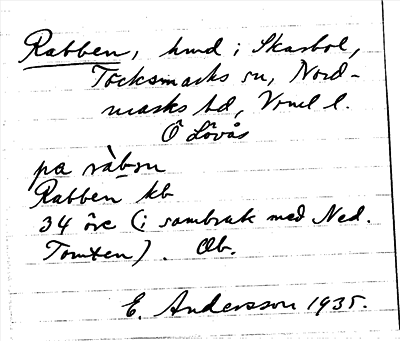 Rabben, hmd i Skarbol,
Töcksmarks sn, Nord-
marks hd, Vrml l.
Ö Lövås
pa ràbən
Rabben kb
34 öre (i sambruk med Ned.
Tomten). Ob.
E. Andersson 1935.